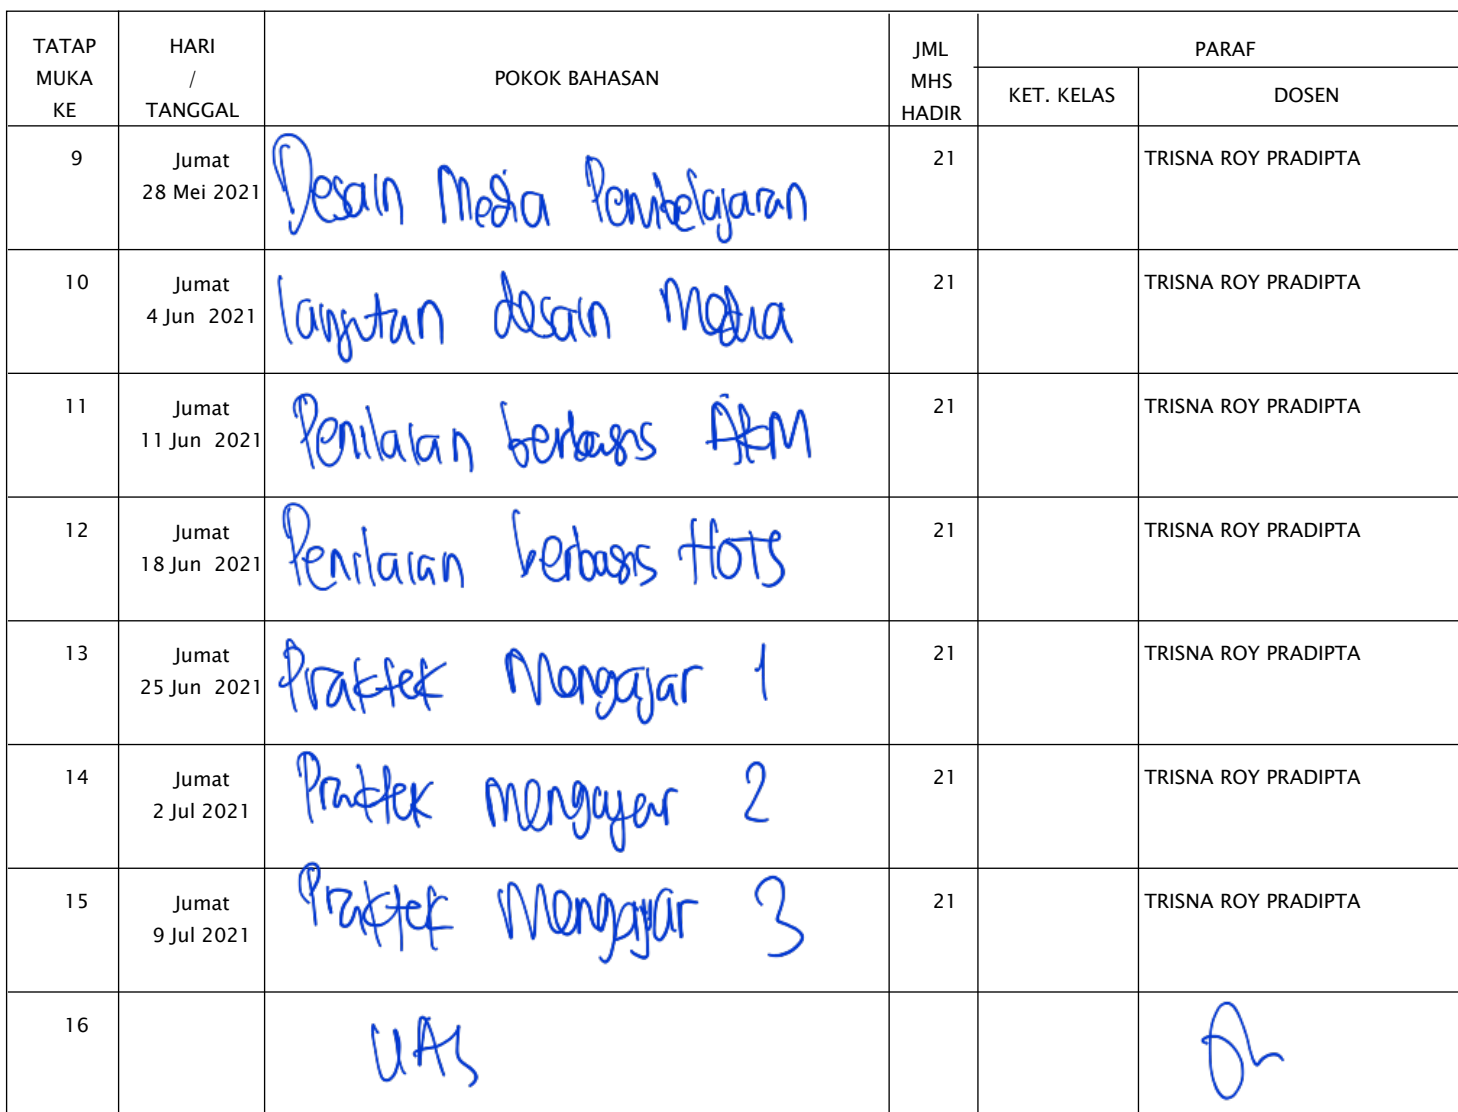 TATAP MUKA KE HARI / TANGGAL POKOK BAHASAN JML MHS HADIR PARAF
KET. KELAS DOSEN
9 Jumat 28 Mei 2021 Desain Media Pembelajaran 21 TRISNA ROY PRADIPTA
10 Jumat 4 Jun 2021 lanjutan desain Media 21 TRISNA ROY PRADIPTA
11 Jumat 11 Jun 2021 Penilaian berbasis AKM 21 TRISNA ROY PRADIPTA
12 Jumat 18 Jun 2021 Penilaian berbasis HOTS 21 TRISNA ROY PRADIPTA
13 Jumat 25 Jun 2021 Praktek Mengajar 1 21 TRISNA ROY PRADIPTA
14 Jumat 2 Jul 2021 Praktek mengajar 2 21 TRISNA ROY PRADIPTA
15 Jumat 9 Jul 2021 Praktek Mengajar 3 21 TRISNA ROY PRADIPTA
16 UAS